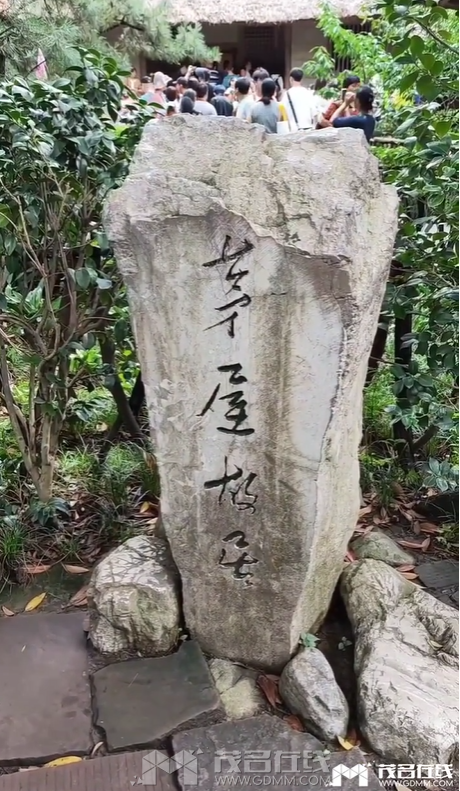 茅屋故居
茂名在线
WWW.GDMM.COM
茂名在线
WWW.GDMM.COM